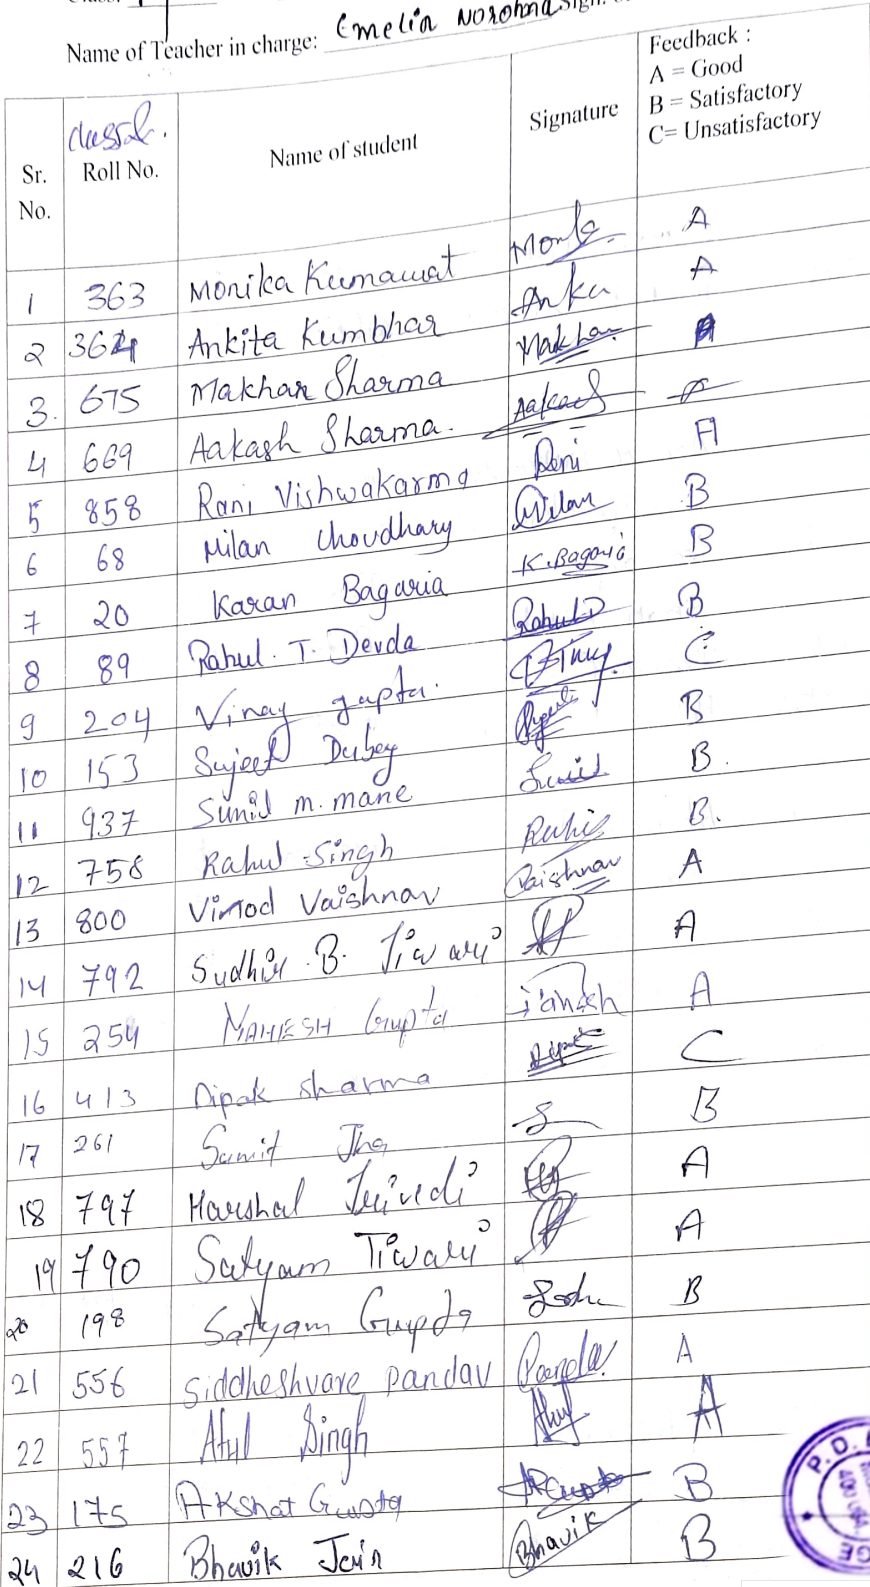 Name of Teacher in charge: Emelia Noronha Sign.
Feedback :
A = Good
B = Satisfactory
C= Unsatisfactory
Sr. No. Roll No. Name of student Signature
1 363 Monika Kumawat A
2 364 Ankita Kumbhar Anku A
3. 675 Makhan Sharma Makhan A
4 669 Aakash Sharma. Aakash A
5 858 Rani Vishwakarma Rani A
6 68 Milan Choudhary Milan B
7 20 Karan Bagaria K. Bagaria B
8 89 Rahul. T. Devda Rahul.D B
9 204 Vinay gupta. C
10 153 Sujeet Dubey B
11 937 Sunil m. mane Sunil B.
12 758 Rahul Singh B.
13 800 Vinod Vaishnav Vaishnav A
14 792 Sudhir B. Tiwari A
15 254 MAHESH Gupta A
16 413 Dipak sharma C
17 261 Sumit Jha B
18 797 Harshal Trivedi A
19 790 Satyam Tiwari A
20 198 Satyam Gupta B
21 556 Siddheshvare pandav A
22 557 Atul Singh Atul A
23 175 Akshat Gupta B
24 216 Bhavik Jain Bhavik B
P.D.